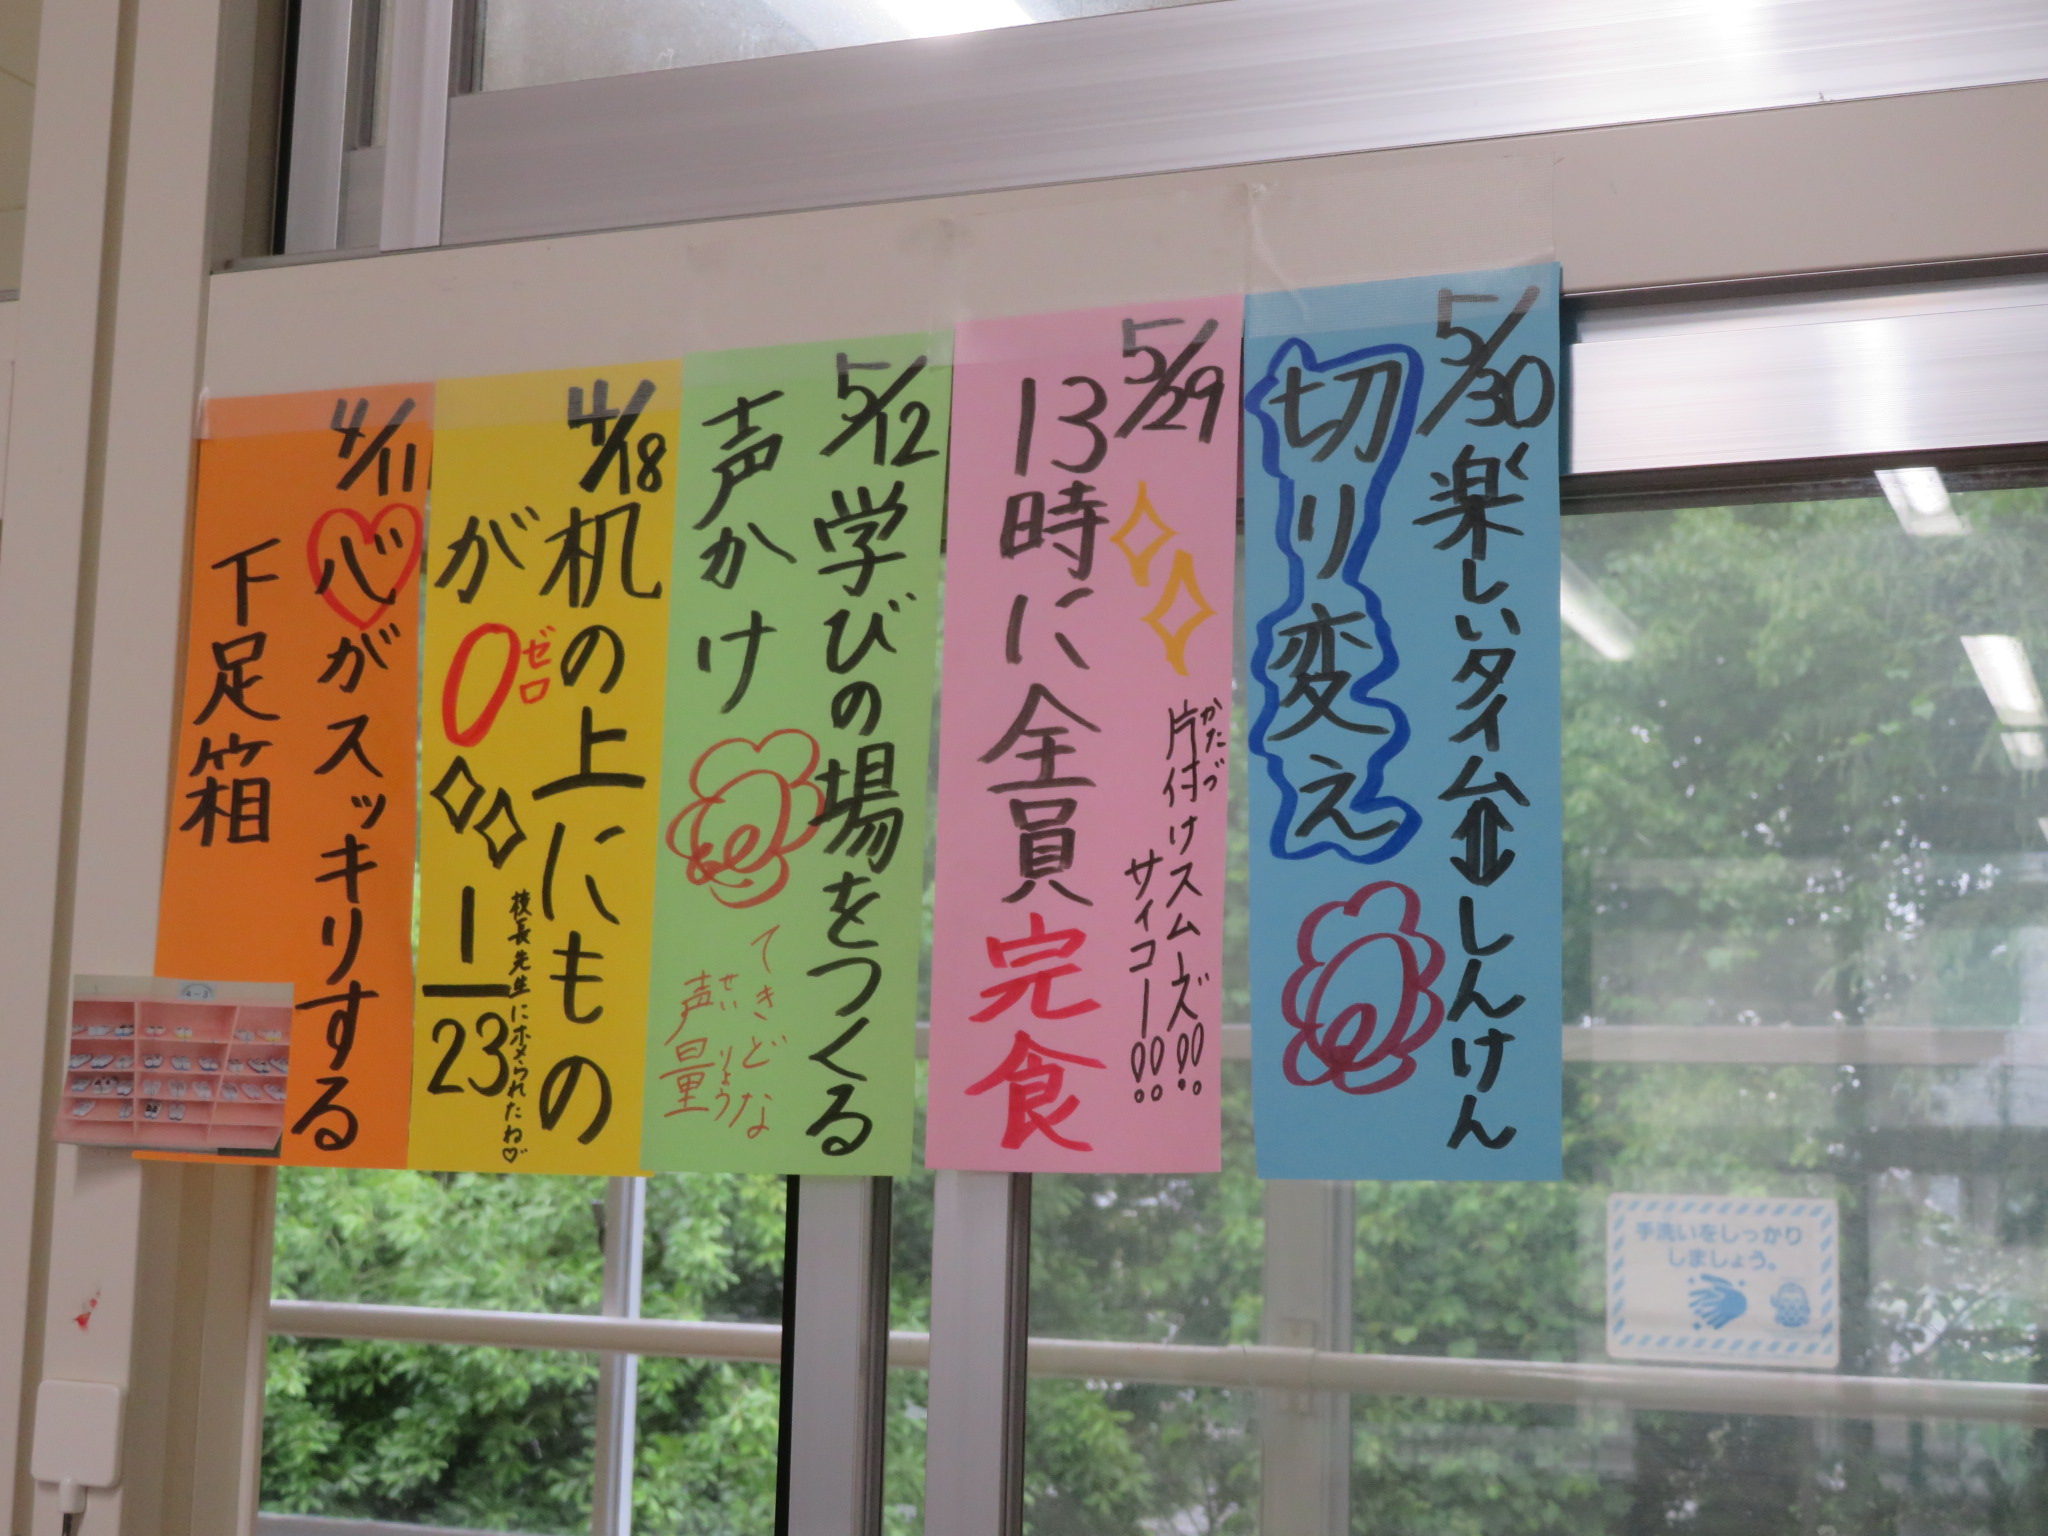 4/11
心がスッキリする
下足箱
4/18
机の上にもの
が0
ゼロ
1/23
校長先生にホメられたね♡
5/12
学びの場をつくる
声かけ
てきどな
声量
せいりょう
5/29
片付けスムーズ!!
かたづ
サイコー!!
13時に全員完食
5/30
楽しいタイム⇕しんけん
切り変え
手洗いをしっかり
しましょう。